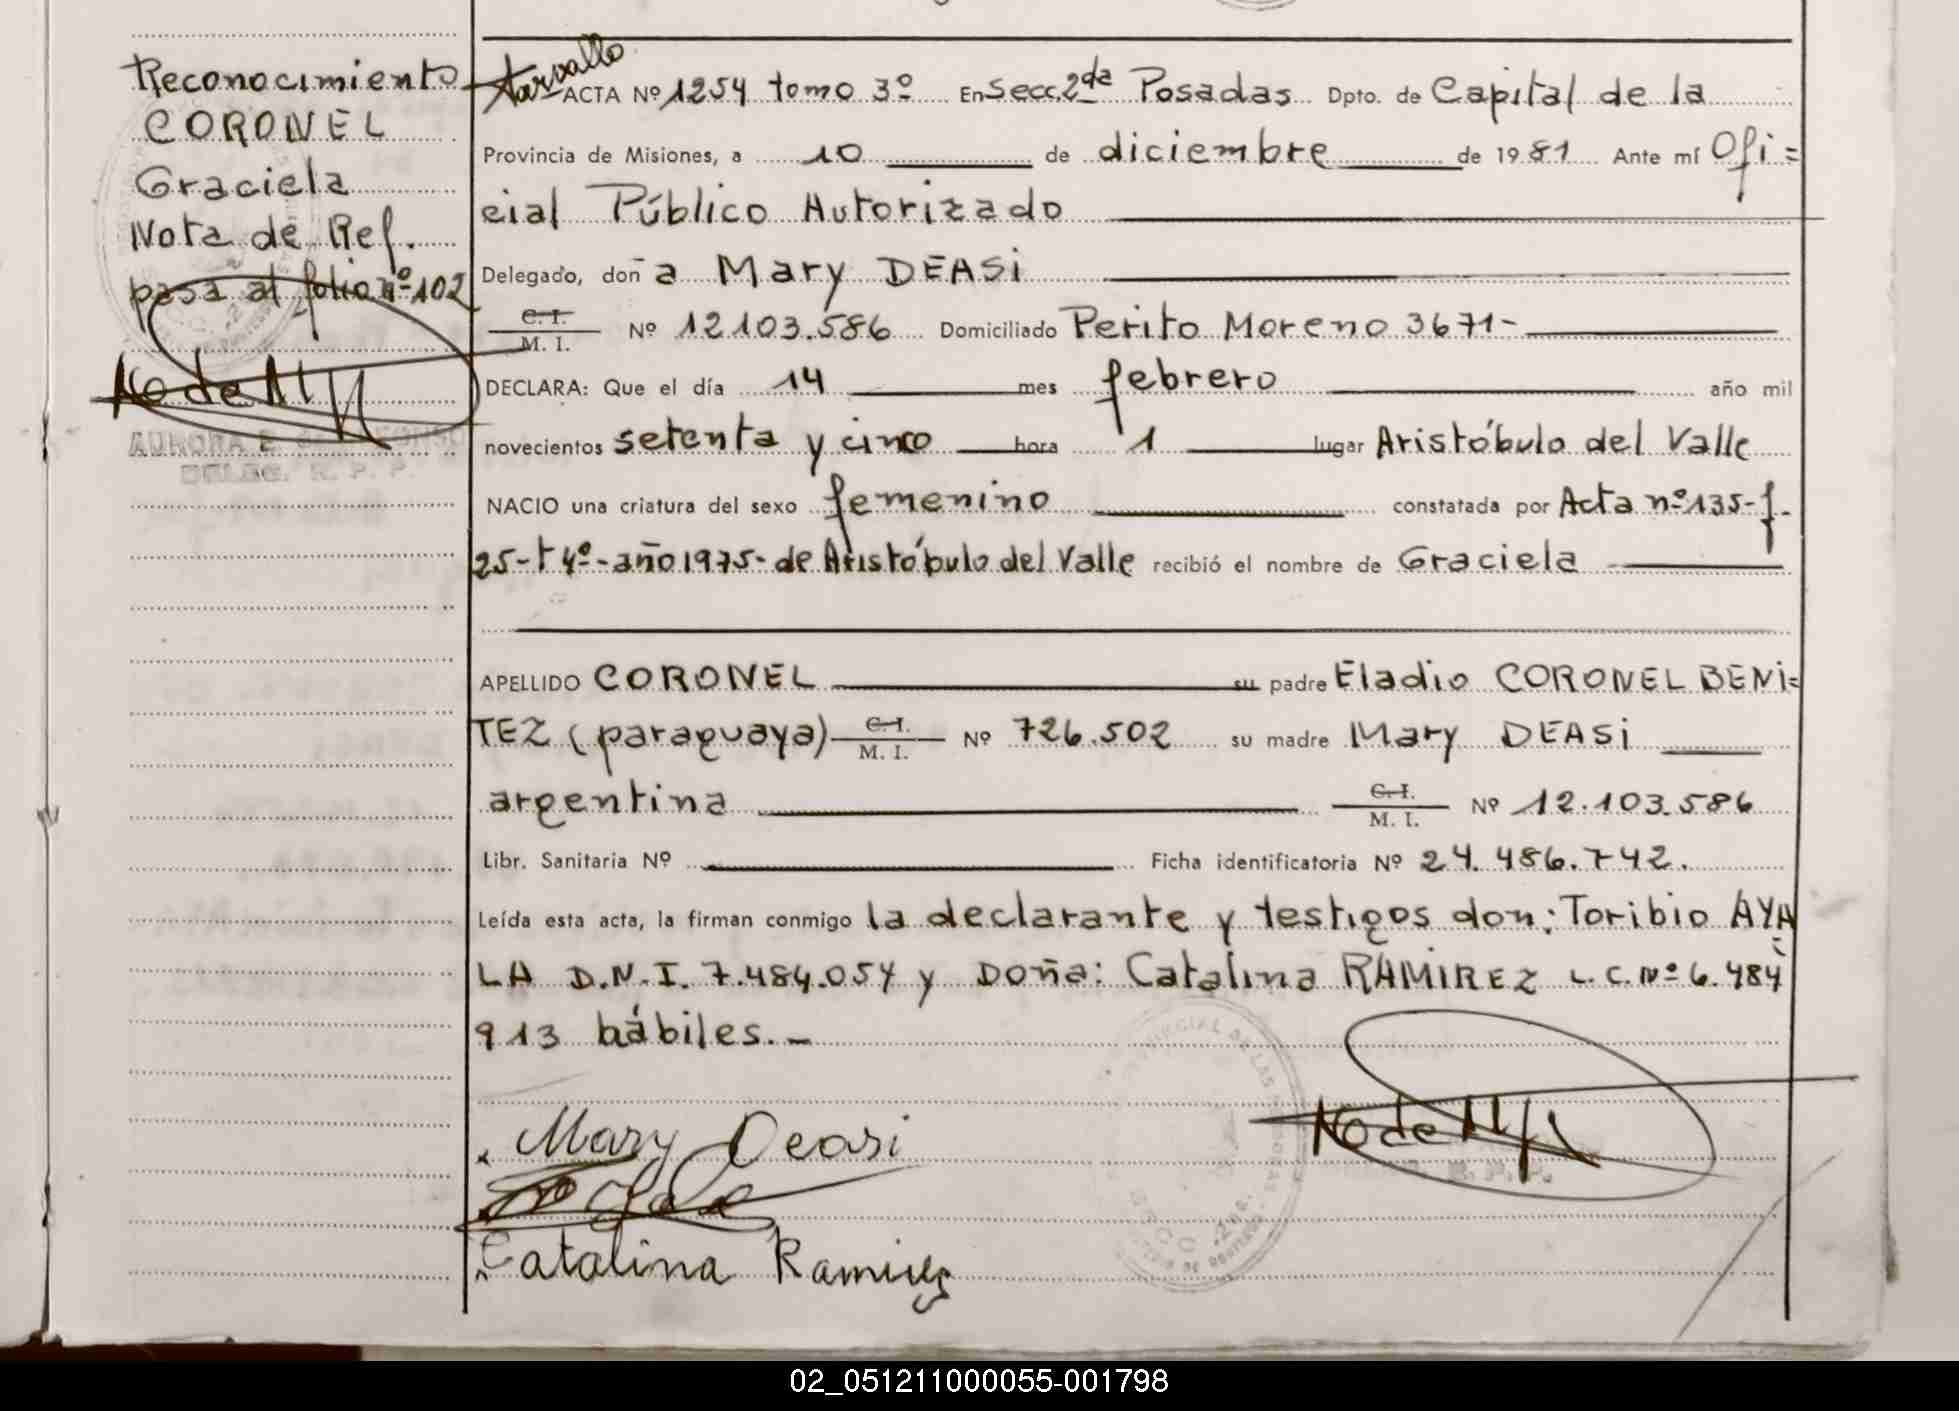 Reconocimiento
CORONEL
Graciela
Nota de Ref.
pasa al folio nº 102
AURORA E. de
DELEG. R. P. P.
ACTA Nº 1254 tomo 3º En Secc. 2da Posadas Dpto. de Capital de la
Provincia de Misiones, a 10 de diciembre de 1981 Ante mí Ofi=
cial Público Autorizado
Delegado, doña Mary DEASi
C. I.
M. I. Nº 12.103.586 Domiciliado Perito Moreno 3671-
DECLARA: Que el día 14 mes febrero año mil
novecientos setenta y cinco hora 1 lugar Aristóbulo del Valle
NACIO una criatura del sexo femenino constatada por Acta nº 135-f.
25-t 4º-año 1975- de Aristóbulo del Valle recibió el nombre de Graciela
APELLIDO CORONEL su padre Eladio CORONEL BENi=
TEZ (paraguaya) C. I.
M. I. Nº 726.502 su madre Mary DEASi
argentina C. I.
M. I. Nº 12.103.586
Libr. Sanitaria Nº Ficha identificatoria Nº 24.486.742.
Leída esta acta, la firman conmigo la declarante y testigos don: Toribio AYA
LA D.N.I. 7.484.054 y Doña: Catalina RAMIREZ L.C. Nº 6.484
913 hábiles.-
Mary Deasi
Catalina Ramirez
02_051211000055-001798